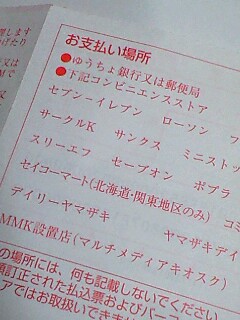 お支払い場所
●ゆうちょ銀行又は郵便局
●下記コンビニエンスストア
セブン-イレブン ローソン フ
サークルK サンクス ミニストッ
スリーエフ セーブオン ポプラ
セイコーマート(北海道・関東地区のみ) コミ
デイリーヤマザキ ヤマザキデイ
MMK設置店(マルチメディアキオスク)
の場所には、何も記載しないでください
額訂正された払込票およびバーコ
アではお取扱いできませ